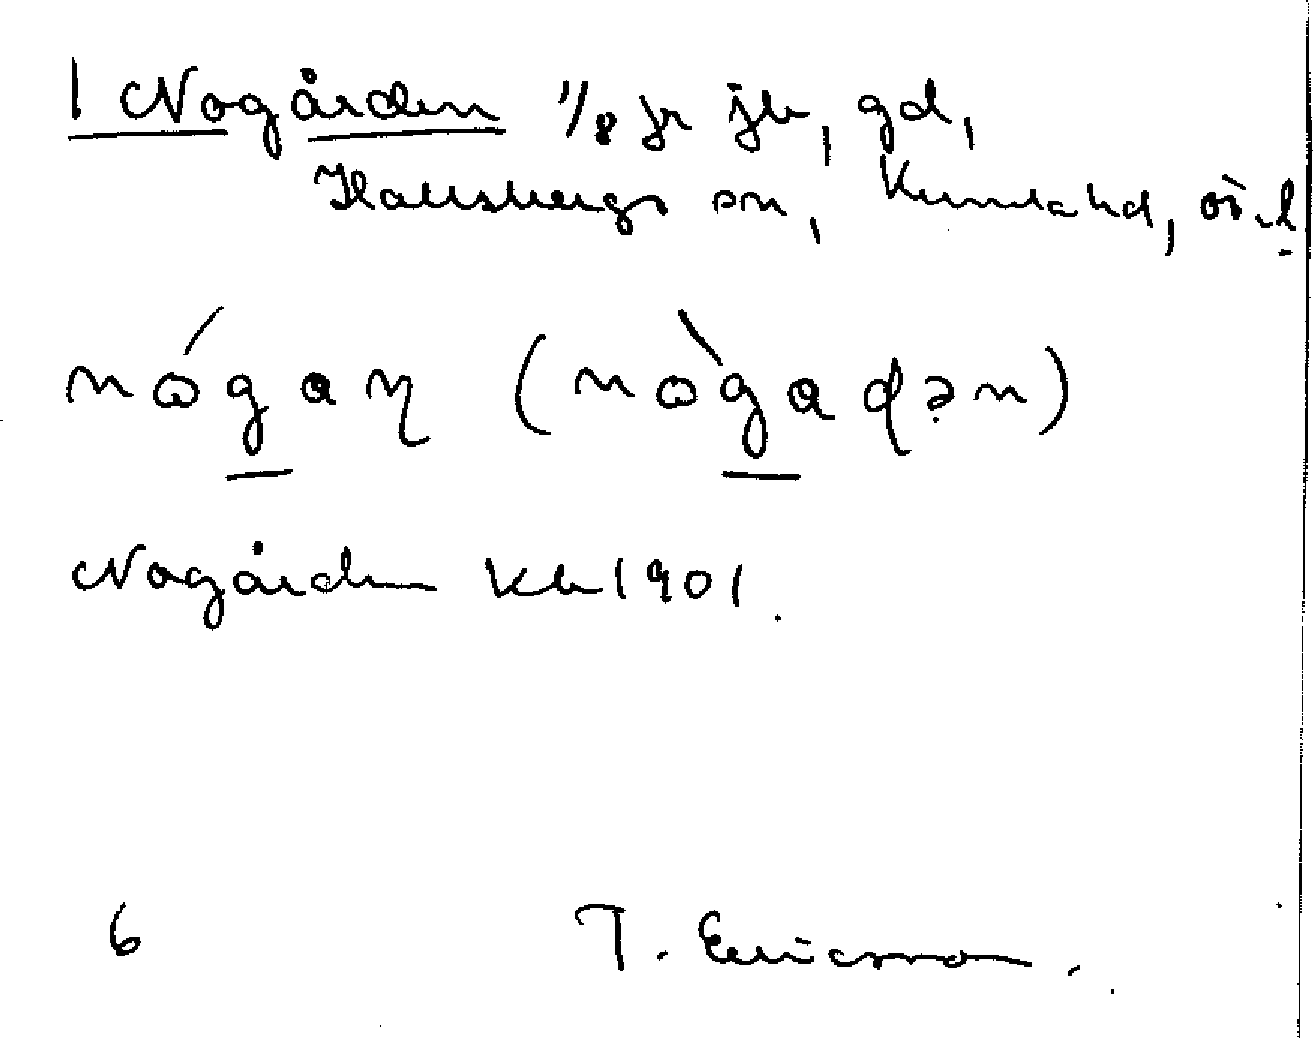 1 Nogården 1/8 fr jb, gd,
Hallsbergs sn, Kumla hd, ör. l
nógaη (nògadən)
Nogården kb 1901.
6 T. Ericsson.